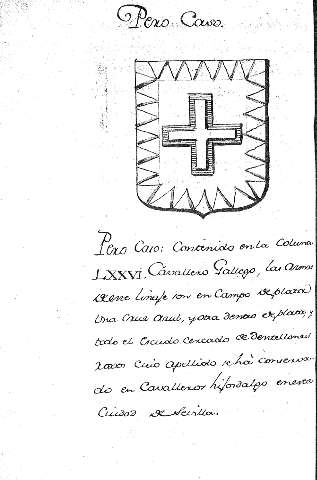 Pero Caro.
Pero Caro: Contenido en la Coluna
LXXVI. Cavallero Gallego, las Armas
de este linaje son en Campo de plata
Una Cruz Azul, y otra dentro de plata, y
todo el Escudo cercado de dentellones
cuio apellido se há conserva-
do en Cavalleros hijosdalgo en esta
Ciudad de Sevilla.